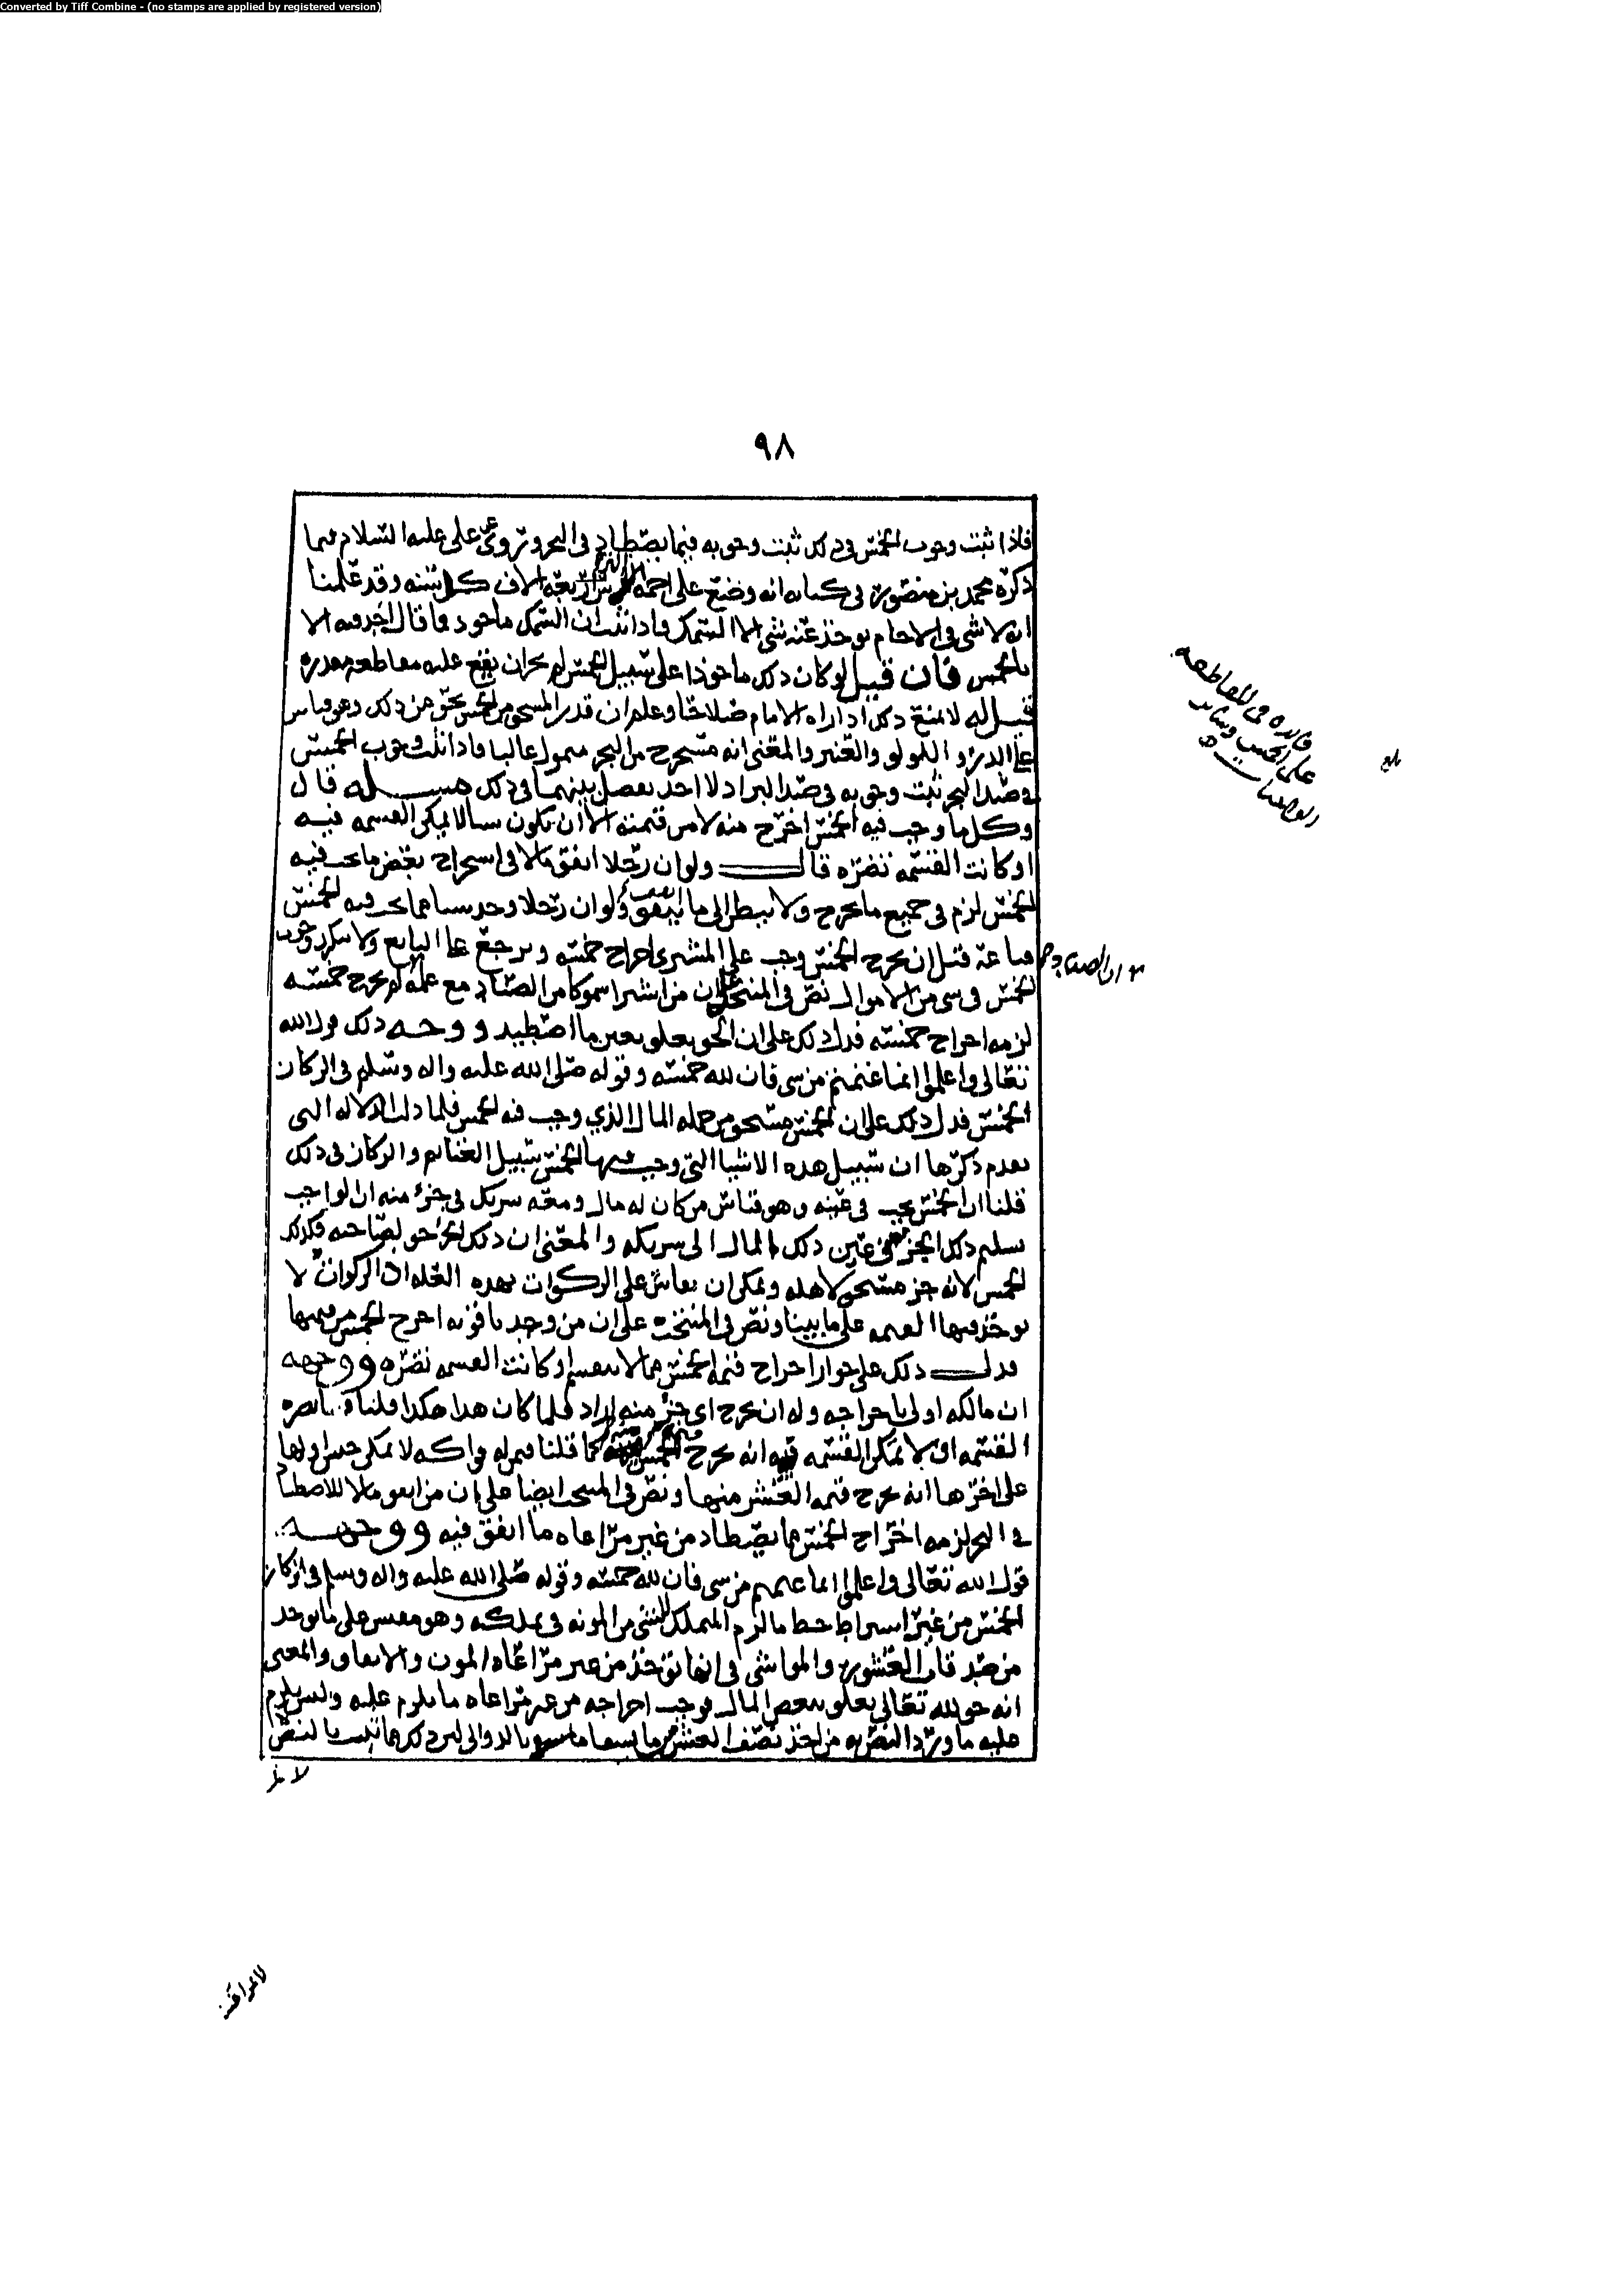 Converted by Tiff Combine - (no stamps are applied by registered version)
٩٨
فاذا ثبت وجوب الخمس في ذلك ثبت وجوبه فيما يصطاد في البحر وروي عن علي عليه السلام فيما
ذكره محمد بن منصور في كتابه انه وضع على اجمة اربعة الاف كل سنة وقد علمنا
انه لا شي في الاجام يوخذ عنه شي الا السمك فاذا ثبت ان السمك ماخوذ فما قال احد فيه الا
بالخمس فان قيل لو كان ذلك ماخوذا على سبيل الخمس لم يجز ان يقع عليه مقاطعه مقدره
قيل له لا يمنع ذلك اذا راه الامام صلاحا وعلم ان قدر المستحق من الخمس نحو من ذلك وهو قياس
على الدر و اللولو والعنبر والمعنى انه مستخرج من البحر متمول غالبا فاذا ثبت وجوب الخمس
في صيد البحر ثبت وجوبه في صيد البر اذ لا احد يفصل بينهما في ذلك مسله قال
وكل ما وجب فيه الخمس اخرج منه لا من قيمته الا ان يكون شيا لا يمكن القسمه فيه
او كانت القسمه تضره قال ولو ان رجلا انفق مالا في استخراج بعض ما يجب فيه
الخمس لزم في جميع ما يخرج ولا ينظر الى ما ينفق ولو ان رجلا وجد شيا مما يجب فيه الخمس
فباعه قبل ان يخرج الخمس وجب على المشتري اخراج خمسه ويرجع على البايع ولا يتكرر وجوب
الخمس في شي من الاموال نص في المنتخب على ان من اشترا سموكا من الصياد مع علمه انه لم يخرج خمسه
لزمه اخراج خمسه فدل ذلك على ان الحق يعلق بعين ما اصطيد ووجه ذلك قول الله
تعالى واعلموا انما غنمتم من شي فان لله خمسه وقوله صلى الله عليه واله وسلم في الركاز
الخمس فدل ذلك على ان الخمس مستحق من جمله المال الذي وجب فيه الخمس فلما دلت الدلاله التي
تقدم ذكرها ان سبيل هذه الاشيا التي وجب فيها الخمس سبيل الغنايم والركاز في ذلك
قلنا ان الخمس يجب في عينه وهو قياس من كان له مال ومعه شريك في جزء منه ان الواجب
تسليم ذلك الجزء من عين ذلك المال الى شريكه والمعنى ان ذلك الجزء حق لصاحبه فكذلك
الخمس لانه جز مستحق لاهله ويمكن ان يقاس على الزكوات بهذه العله اذ الزكوات لا
يوخذ فيها القيمه على ما بينا ونص في المنتخب على ان من وجد ياقوته اخرج الخمس من قيمتها
فدل ذلك على جواز اخراج قيمه الخمس مما لا ينقسم او كانت القسمه تضره ووجهه
ان مالكه اولى باخراجه وله ان يخرج اي جزء منه اراد فلما كان هذا هكذا قلنا فيما تضره
القسمه او لا يمكن القسمه فيه انه يخرج قيمه الخمس كما قلنا فيمن له فواكه لا يمكن حبس اولها
على اخرها انه يخرج قيمه العشر منها ونص في المنتخب ايضا على ان من انفق مالا للاصطياد
في البحر لزمه اخراج الخمس مما يصطاد من غير مراعاه ما انفق فيه ووجهه
قول الله تعالى واعلموا انما غنمتم من شي فان لله خمسه وقوله صلى الله عليه واله وسلم في الركاز
الخمس من غير اشتراط حط ما لزم المتملك للشي من المونه في تملكه وهو مقيس على ما يوخذ
من صدقات العشور والمواشي في انها توخذ من غير مراعاه المون والانفاق والمعنى
انه حق لله تعالى يعلق ببعض المال فوجب اخراجه من غير مراعاه ما يلزم عليه وليس يلزم
عليه ما ورد النص به من اخذ نصف العشر مما يسقا بالدوالي لان ذلك مما ثبت بالنص
فايده في المقاطعه
على الخمس وساير
الواجبات
بلغ
لا نظر